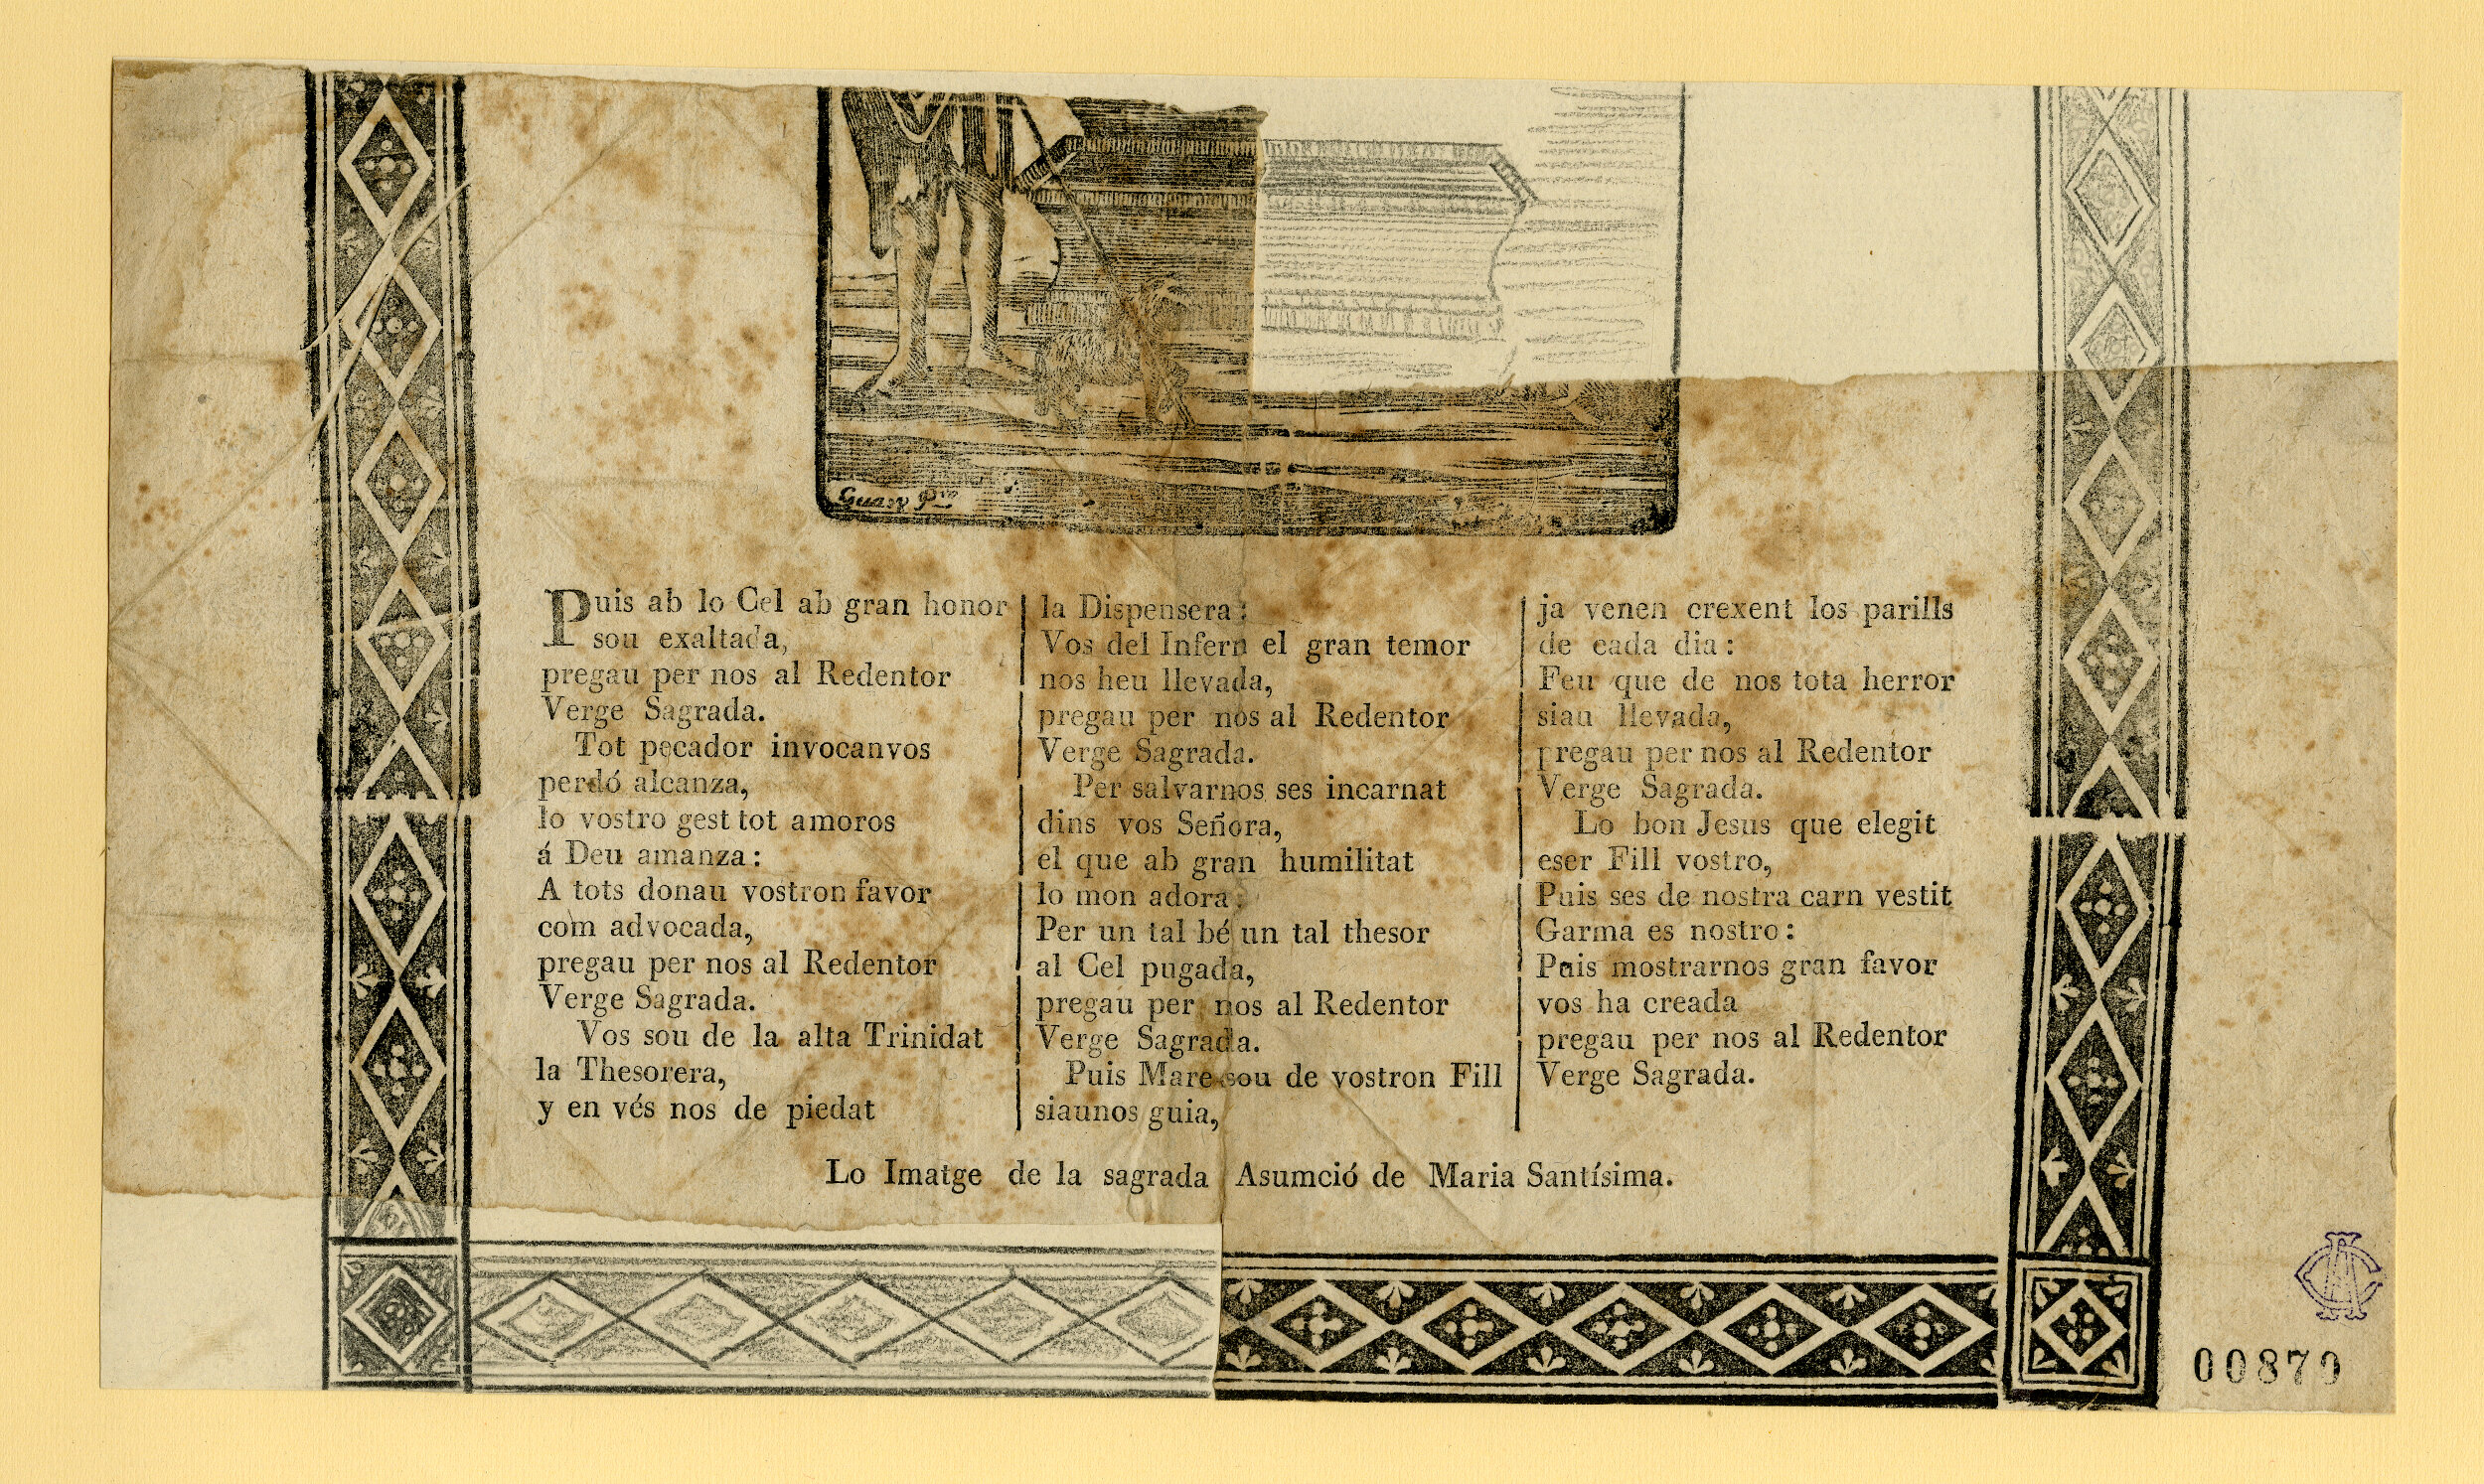 Guasp P.ⁱᵒ
Puis ab lo Cel ab gran honor
sou exaltada,
pregau per nos al Redentor
Verge Sagrada.
Tot pecador invocanvos
perdó alcanza,
lo vostro gest tot amoros
á Deu amanza:
A tots donau vostron favor
com advocada,
pregau per nos al Redentor
Verge Sagrada.
Vos sou de la alta Trinidat
la Thesorera,
y en vés nos de piedat
la Dispensera:
Vos del Infern el gran temor
nos heu llevada,
pregau per nos al Redentor
Verge Sagrada.
Per salvarnos ses incarnat
dins vos Señora,
el que ab gran humilitat
lo mon adora:
Per un tal bé un tal thesor
al Cel pugada,
pregau per nos al Redentor
Verge Sagrada.
Puis Mare sou de vostron Fill
siaunos guia,
ja venen crexent los parills
de cada dia:
Feu que de nos tota herror
siau llevada,
pregau per nos al Redentor
Verge Sagrada.
Lo bon Jesus que elegit
eser Fill vostro,
Puis ses de nostra carn vestit
Garma es nostro:
Puis mostrarnos gran favor
vos ha creada
pregau per nos al Redentor
Verge Sagrada.
Lo Imatge de la sagrada Asumció de Maria Santísima.
00870